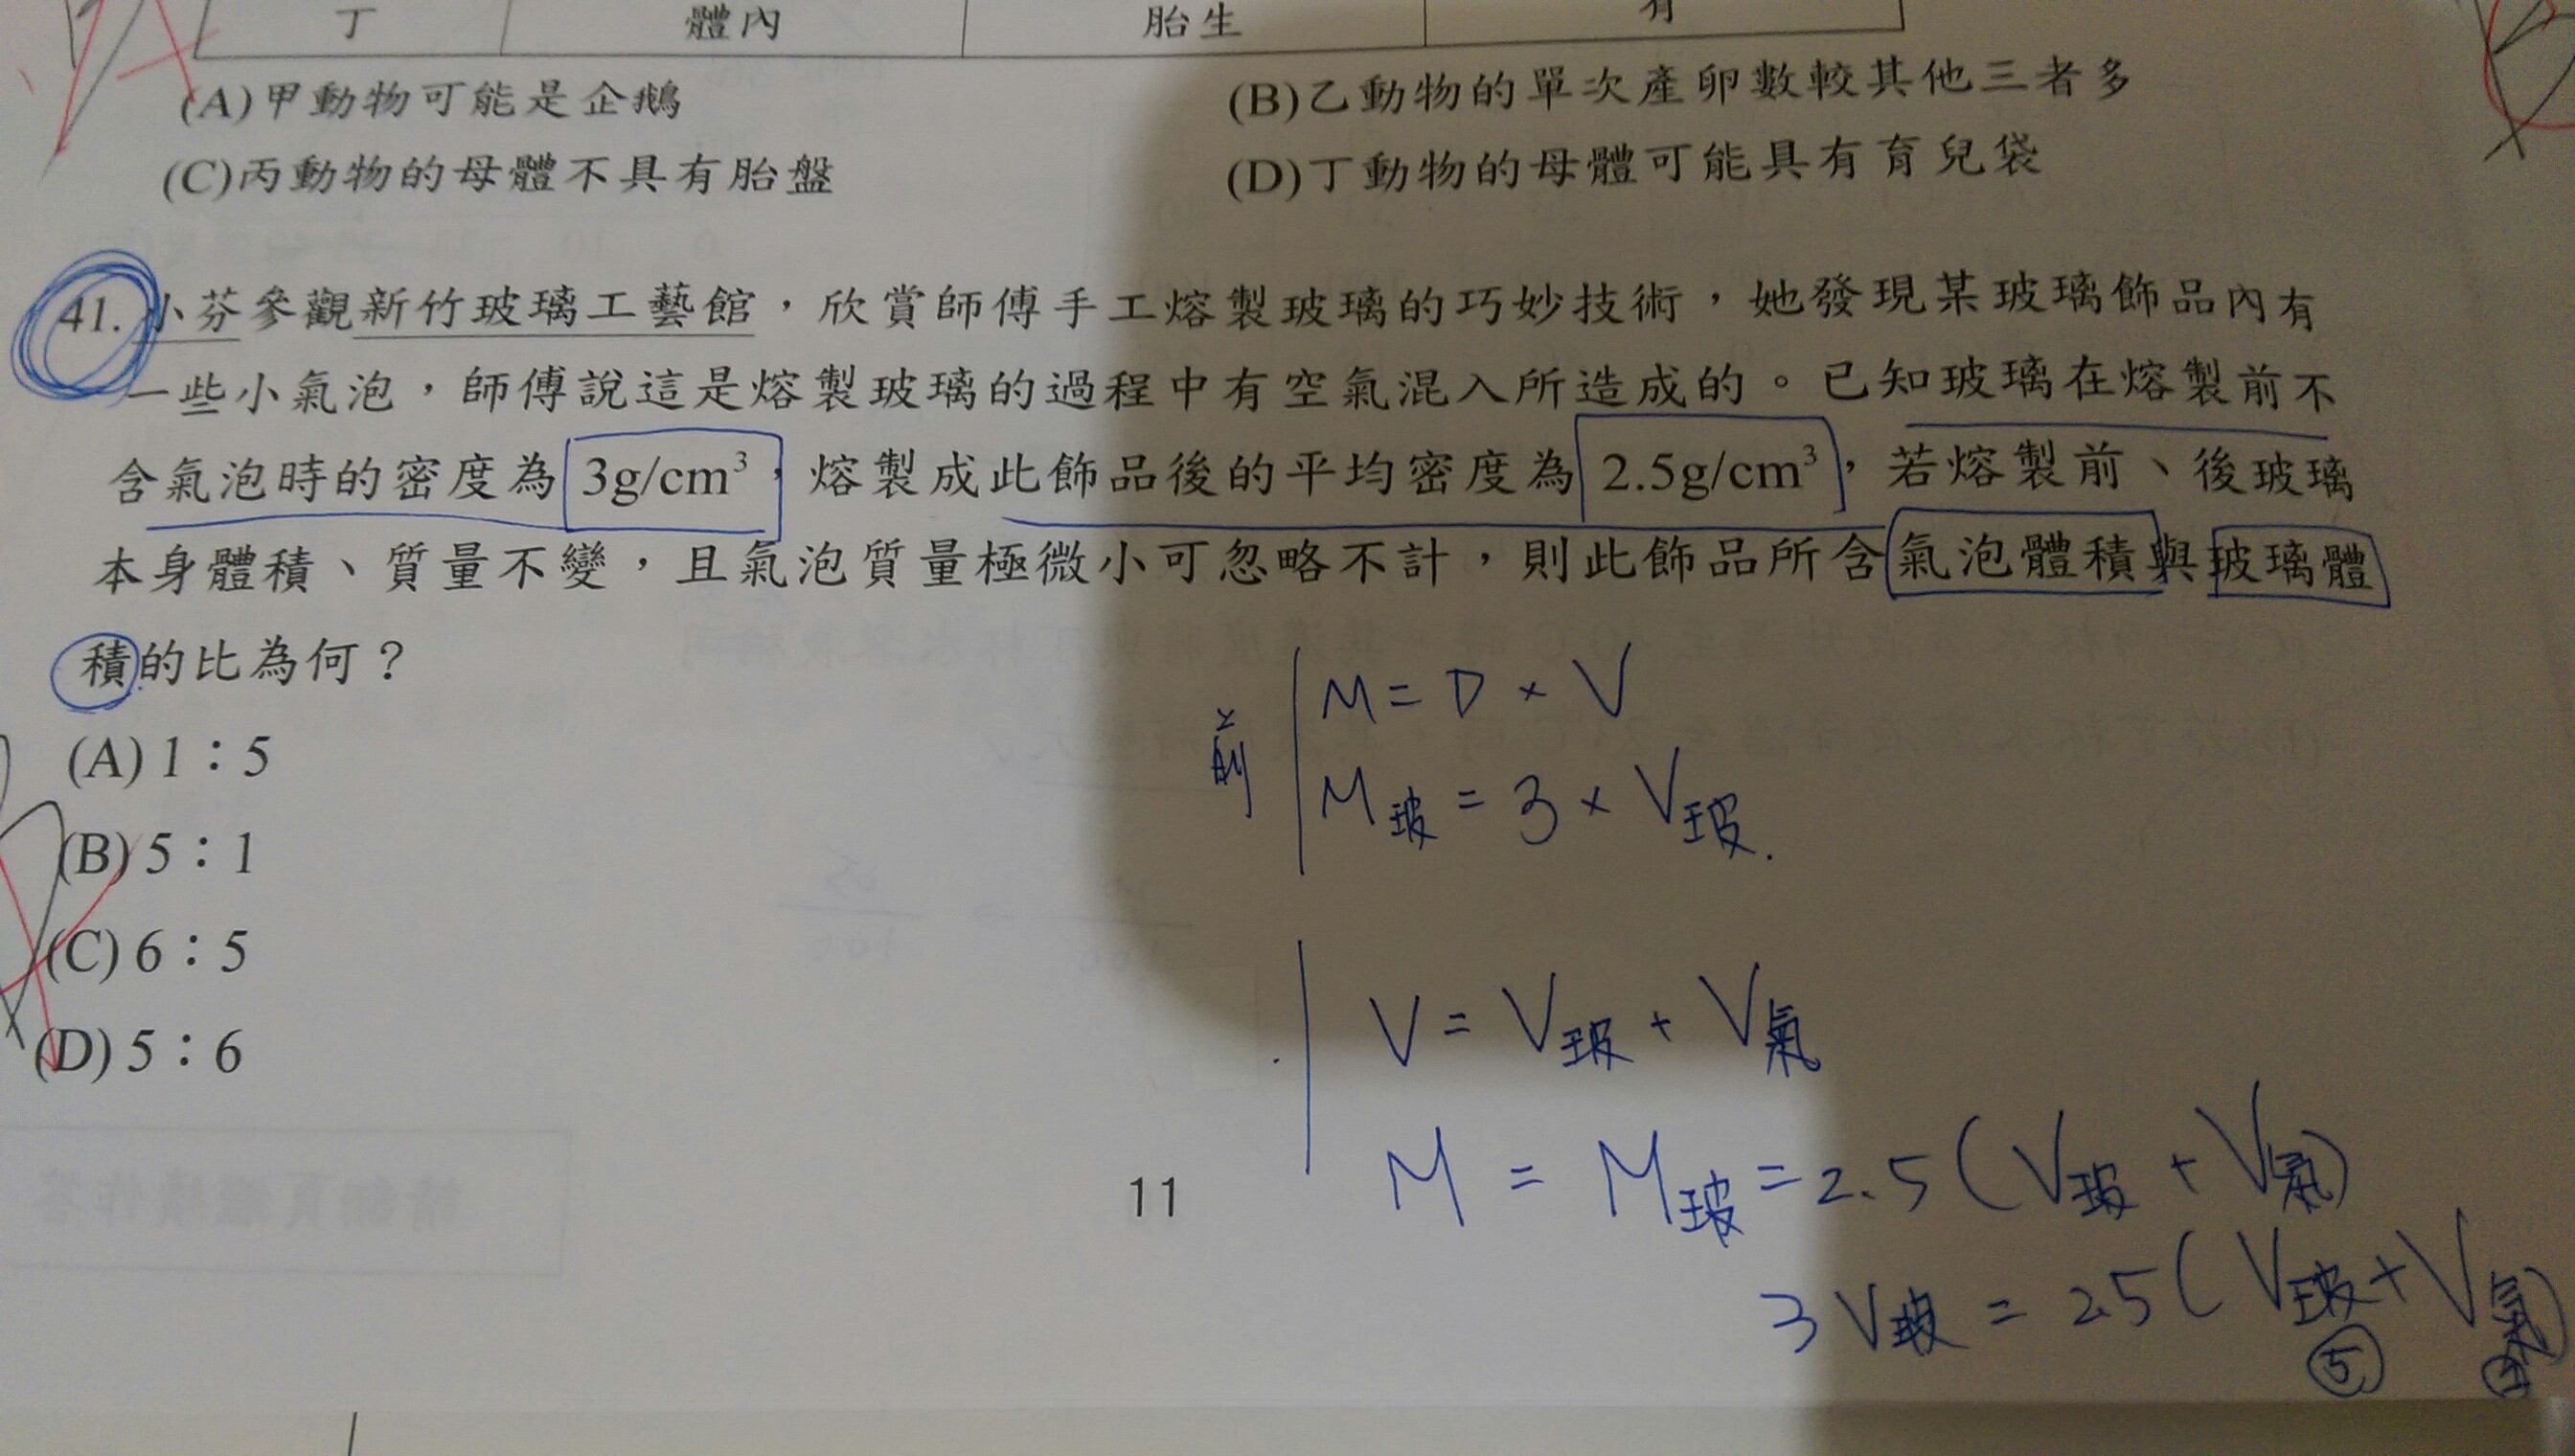 丁 體內 胎生 有
(A)甲動物可能是企鵝 (B)乙動物的單次產卵數較其他三者多
(C)丙動物的母體不具有胎盤 (D)丁動物的母體可能具有育兒袋
41. 小芬參觀新竹玻璃工藝館，欣賞師傅手工熔製玻璃的巧妙技術，她發現某玻璃飾品內有
一些小氣泡，師傅說這是熔製玻璃的過程中有空氣混入所造成的。已知玻璃在熔製前不
含氣泡時的密度為3g/cm³，熔製成此飾品後的平均密度為2.5g/cm³，若熔製前、後玻璃
本身體積、質量不變，且氣泡質量極微小可忽略不計，則此飾品所含氣泡體積與玻璃體
積的比為何？
(A) 1：5
(B) 5：1
(C) 6：5
(D) 5：6
前
M = D × V
M玻 = 3 × V玻.
V = V玻 + V氣
M = M玻 = 2.5 (V玻 + V氣)
3 V玻 = 2.5 (V玻 + V氣)
⑤ ①
11
請翻頁繼續作答